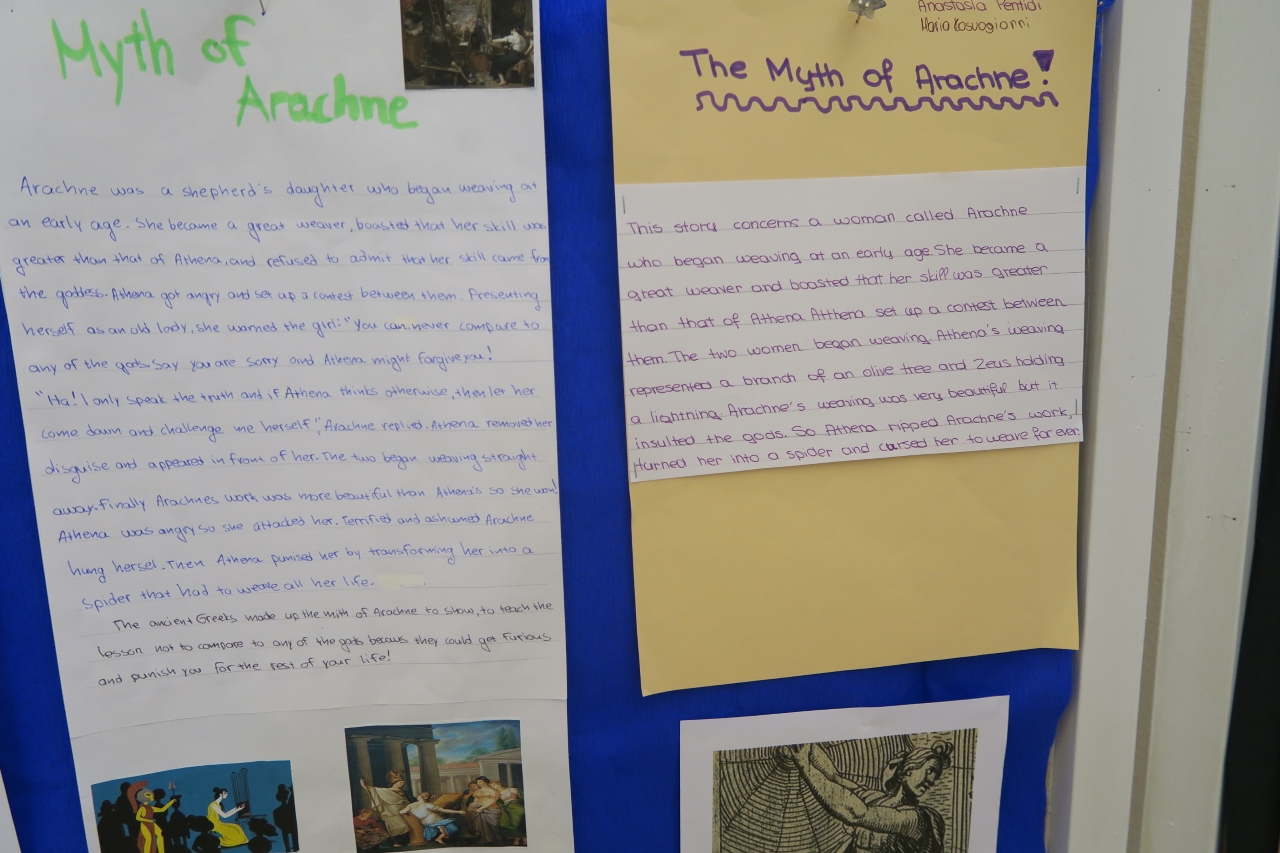 Myth of
Arachne
Arachne was a shepherd's daughter who began weaving at
an early age. She became a great weaver, boasted that her skill was
greater than that of Athena, and refused to admit that her skill came from
the goddess. Athena got angry and set up a contest between them. Presenting
herself as an old lady, she warned the girl: "You can never compare to
any of the gods. Say you are sorry and Athena might forgive you!
"Ha! I only speak the truth and if Athena thinks otherwise, then let her
come down and challenge me herself", Arachne replied. Athena removed her
disguise and appeared in front of her. The two began weaving straight
away. Finally Arachnes work was more beautiful than Athena's so she won!
Athena was angry so she attacked her. Terrified and ashamed Arachne
hung hersel. Then Athena punised her by transforming her into a
spider that had to weave all her life.
The ancient Greeks made up the mith of Arachne to show, to teach the
lesson not to compare to any of the gods becaus they could get furious
and punish you for the rest of your life!
Anastasia Pentidi
Maria
The Myth of Arachne!
This story concerns a woman called Arachne
who began weaving at an early age. She became a
great weaver and boasted that her skill was greater
than that of Athena. Atthena set up a contest between
them. The two women began weaving. Athena's weaving
represented a branch of an olive tree and Zeus holding
a lightning. Arachne's weaving was very beautiful but it
insulted the gods. So Athena ripped Arachne's work,
turned her into a spider and cursed her to weave for ever.